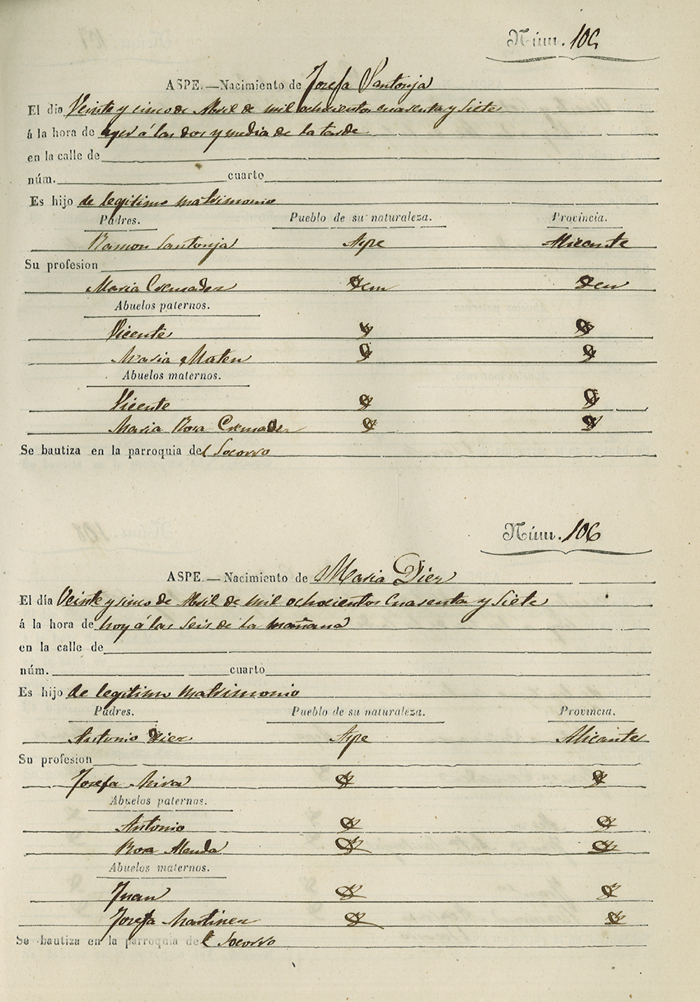 Núm. 105
ASPE.—Nacimiento de Josefa Santonja
El dia Veinte y cinco de Abril de mil ochocientos cuarenta y siete
á la hora de ayer á las dos y media de la tarde
en la calle de
núm. cuarto
Es hijo de legitimo matrimonio
Padres. Pueblo de su naturaleza. Provincia.
Ramon Santonja Aspe Alicante
Su profesion
Maria Cremades
Abuelos paternos.
Vicente
Maria Mateu
Abuelos maternos.
Vicente
Maria Rosa Cremades
Se bautiza en la parroquia del Socorro
Núm. 106
ASPE.—Nacimiento de Maria Diez
El día Veinte y cinco de Abril de mil ochocientos cuarenta y siete
á la hora de hoy á las seis de la mañana
en la calle de
núm. cuarto
Es hijo de legitimo matrimonio
Padres. Pueblo de su naturaleza. Provincia.
Antonio Diez Aspe Alicante
Su profesion
Josefa
Abuelos paternos.
Antonio
Rosa
Abuelos maternos.
Juan
Josefa Martinez
Se bautiza en la parroquia del Socorro